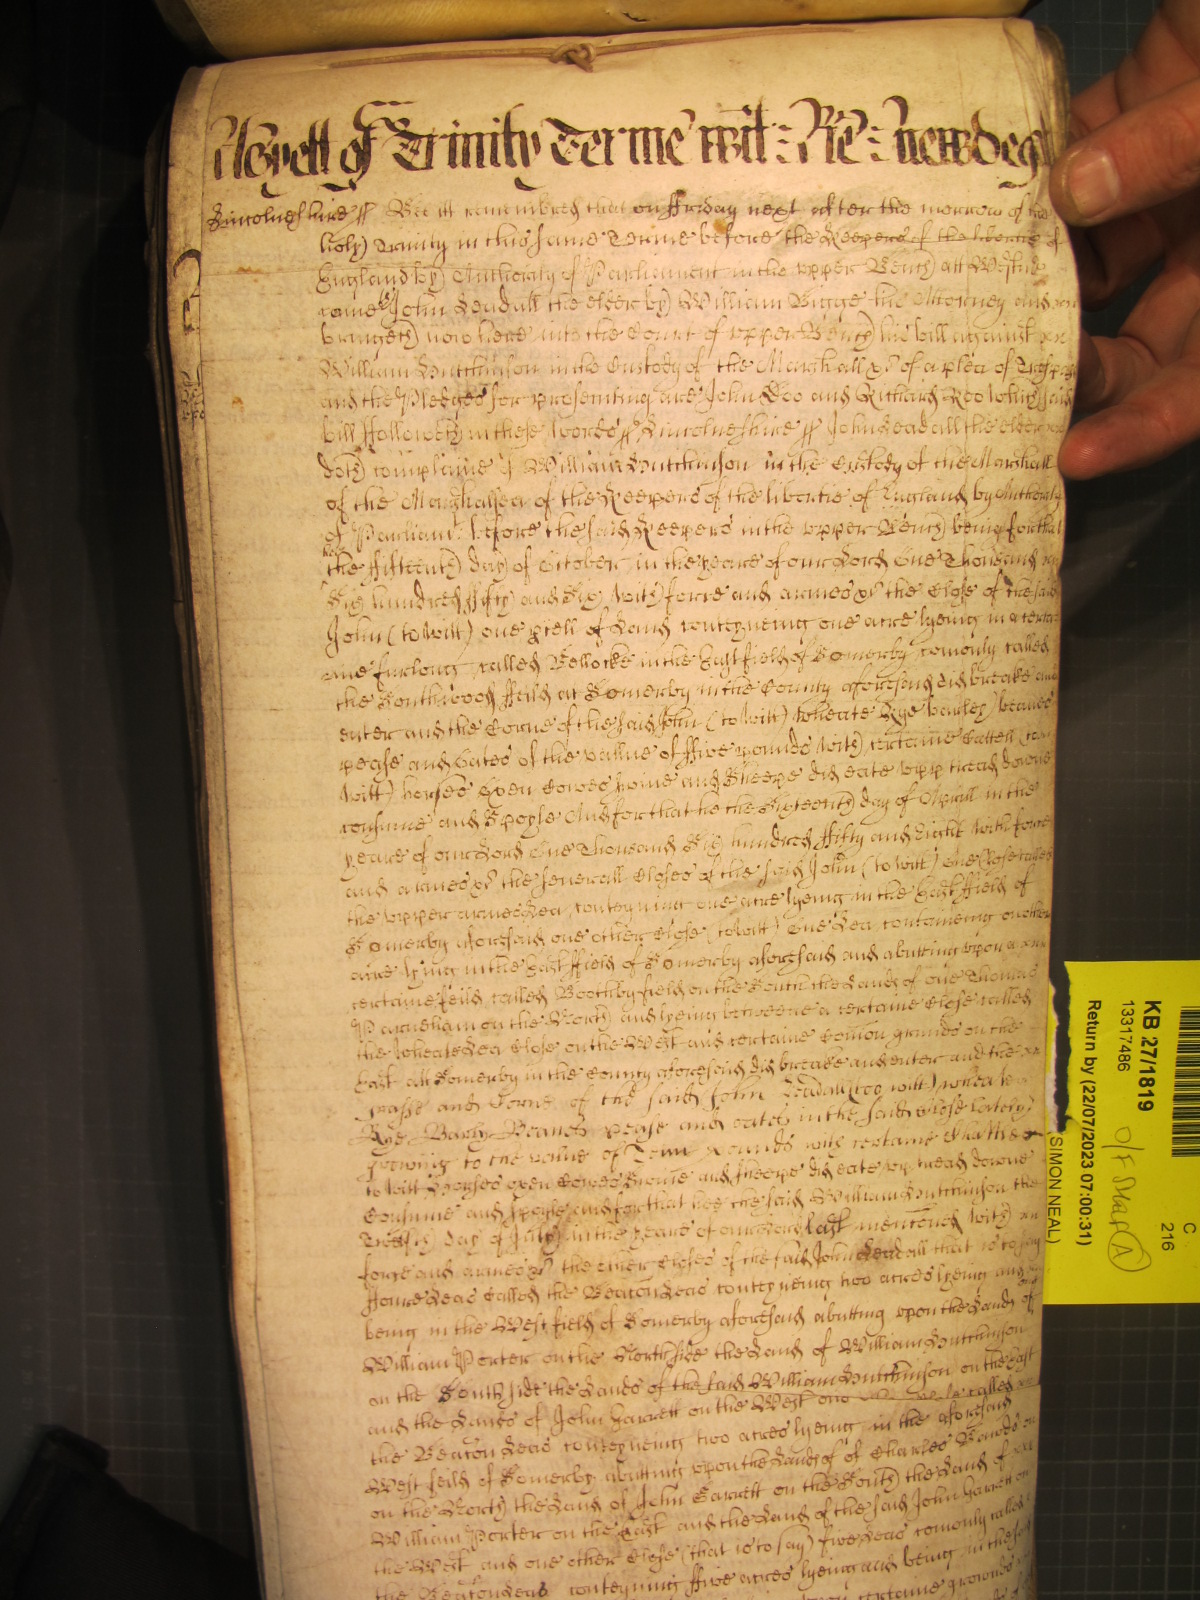 Yett of Trinity Terme wit: Ric: Newdeg
Lincolneshire ss Bee itt remembred that on Friday next after the morrow of the
holy Trinity in this same Terme before the Keepers of the libertie of
England by Authority of Parliament in the upper Bench att Westm
came John Leadall the elder by William Bigge his Attorney and
bringeth now here into the Court of upper Bench his bill against
William Hutchinson in the Custody of the Marshall &c of a plea of Tresp
and the Pledges for prosecuting are John Doo and Richard Roo which said
bill followeth in these words ss Lincolneshire ss John Leadall the elder
doth complaine of William Hutchinson in the Custody of the Marshall
of the Marshallsea of the Keepers of the libertie of England by Authority
of Parliamt before the said Keepers in the upper Bench being for that
hee
the fifteenth day of October in the yeare of our Lord One Thousand
Six hundred fifty and Six with force and armes &c the Close of the said
John (to witt) one pcell of Land conteyneing one acre lyeing in a
furlong called Bellocke in the East field of Somerby comonly called
the Southwood Feild at Somerby in the County aforesaid did breake and
enter and the Corne of the said John (to witt) wheate Rye barley beanes
pease and Oates of the vallue of five pounds with certaine Cattell (to
witt) horses Oxen Cowes swine and Sheepe did eate upp tread downe
consume and Spoyle And for that he the Sixteenth day of Aprill in the
yeare of our Lord One Thousand Six hundred fifty and Eight with force
and armes &c the severall Closes of the said John (to witt) One Close called
the upper armes Lea conteyning one acre lyeing in the East field of
Somerby aforesaid one other Close (to witt) One Lea contaneing one other
acre lying in the East field of Somerby aforesaid and abutting upon a
certaine feild called Boothby field on the South the Lands of one Thomas
Parneham on the North and lyeing betweene a certaine Close called
the wheate Lea Close on the West and certaine Comon grounds on the
East att Somerby in the County aforesaid did breake and enter and the
grasse and Corne of the said John Leadall (too witt) wheate
Rye Barly Beanes pease and oates in the said Close lately
growing to the value of Tenn Pounds with certaine Chattles
to witt Horses oxen Cowes Swine and sheepe did eate up tread downe
Consume and spoyle and for that hee the said William Hutchinson the
day of July in the yeare of our Lord last mentioned with
force and armes &c the other Closes of the said John Leadall that is to say
Foure Leas Called the Beacon Leas conteyneing two acres lyeing and
being in the West field of Somerby aforesaid abutting upon the Lands of
William Porter on the North side the Land of William Hutchinson
on the South side the Lands of the said William Hutchinson on the East
and the Lands of John Garrett on the West one called
the Beacon Leas conteyneing two acres lyeing in the aforesaid
West feild of Somerby abutting upon the Lands of of Charles
on the North the Land of John Garrett on the South the Land of
William Porter on the East and the Land of the said John Garrett on
the West and one other Close (that is to say) five Leas comonly called
the Beacon Leas conteyning five acres lyeing and being in the said
certaine grounds
KB 27/1819
13317486
Return by (22/07/2023 07:00:31)
(SIMON NEAL)
C
216
O/F
A